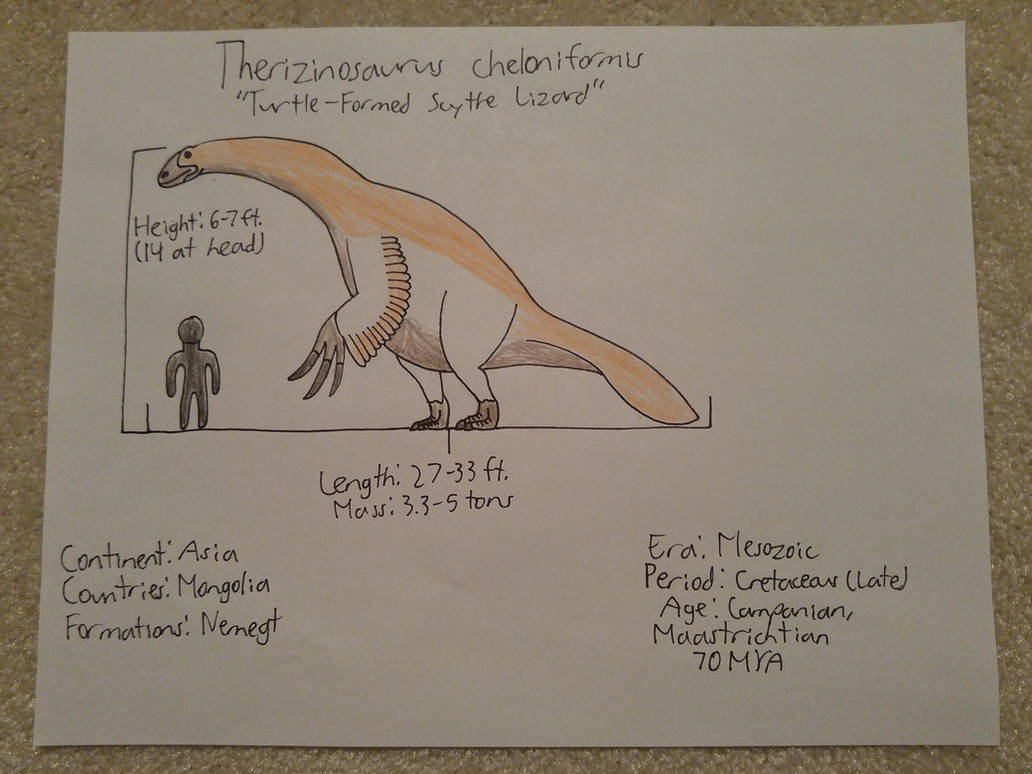 Therizinosaurus cheloniformis
"Turtle-Formed Scythe Lizard"
Height: 6-7 ft.
(14 at head)
Length: 27-33 ft.
Mass: 3.3-5 tons
Continent: Asia
Countries: Mongolia
Formations: Nemegt
Era: Mesozoic
Period: Cretaceous (Late)
Age: Campanian,
Maastrichtian
70 MYA